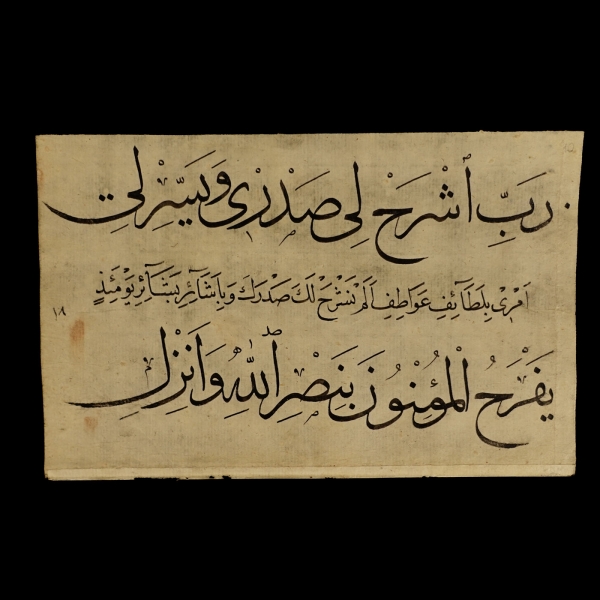 رَبِّ ٱشْرَحْ لِي صَدْرِي وَيَسِّرْ لِي
اَمْرِي بِلَطَآئِفِ عَوَاطِفِ اَلَمْ نَشْرَحْ لَكَ صَدْرَكَ وَبِاَشَآئِرِ بَشَآئِرِ يَوْمَئِذٍ
١٨
يَفْرَحُ الْمُؤْمِنُونَ بِنَصْرِ ٱللهِ وَاَنْزِلِ